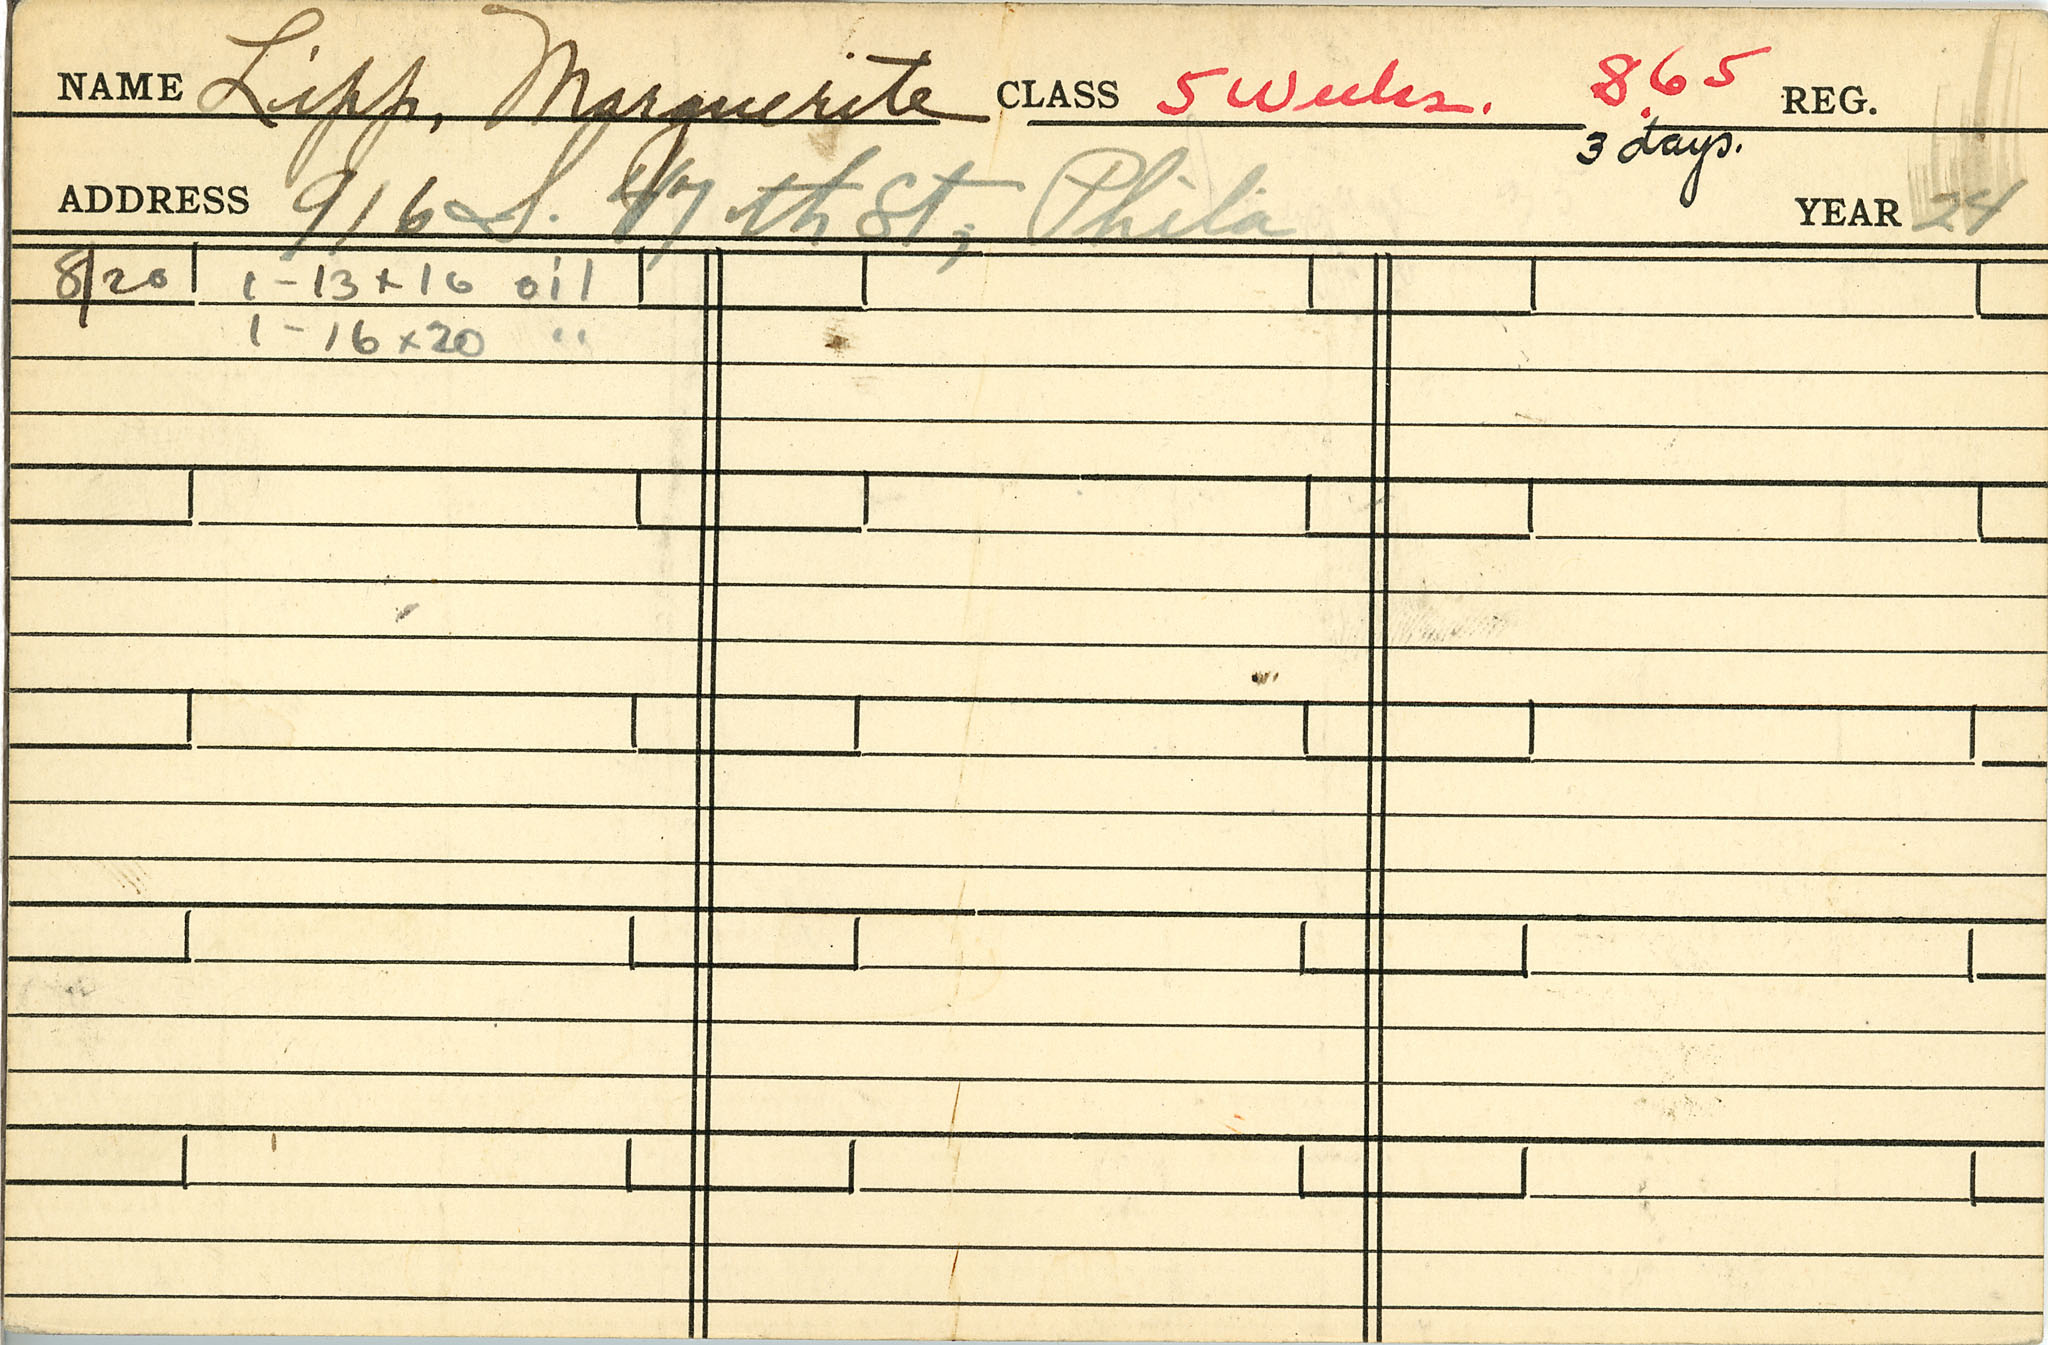 NAME Lipp, Marguerite CLASS 5 Weeks. 8.65 REG.
3 days.
ADDRESS 916 S. 47th St, Phila YEAR 24
8/20 1-13x16 oil
1-16x20 "